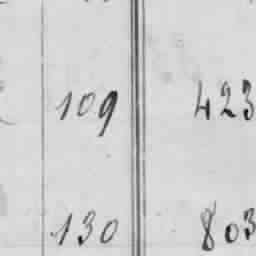 109 423
130 803